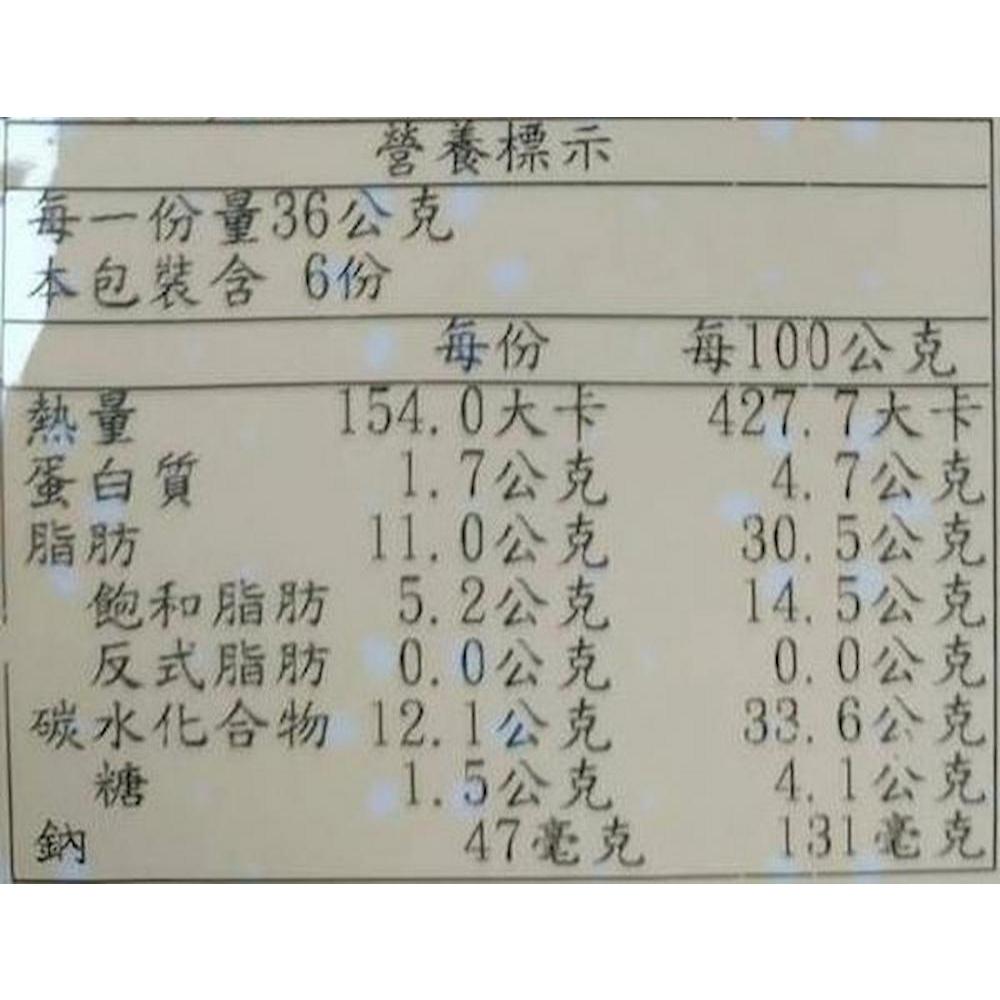 營養標示
每一份量36公克
本包裝含 6份
每份 每100公克
熱量 154.0大卡 427.7大卡
蛋白質 1.7公克 4.7公克
脂肪 11.0公克 30.5公克
飽和脂肪 5.2公克 14.5公克
反式脂肪 0.0公克 0.0公克
碳水化合物 12.1公克 33.6公克
糖 1.5公克 4.1公克
鈉 47毫克 131毫克